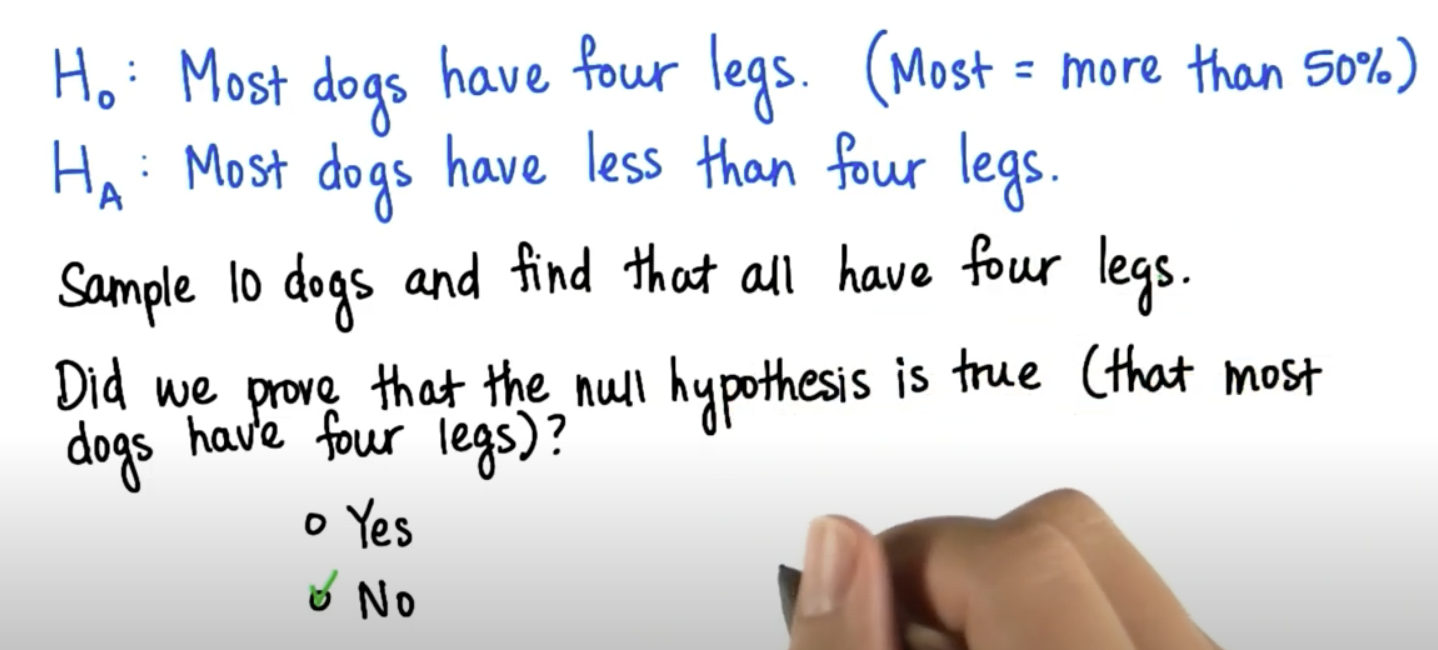 H₀: Most dogs have four legs. (Most = more than 50%)
H_A: Most dogs have less than four legs.
Sample 10 dogs and find that all have four legs.
Did we prove that the null hypothesis is true (that most
dogs have four legs)?
Yes
No